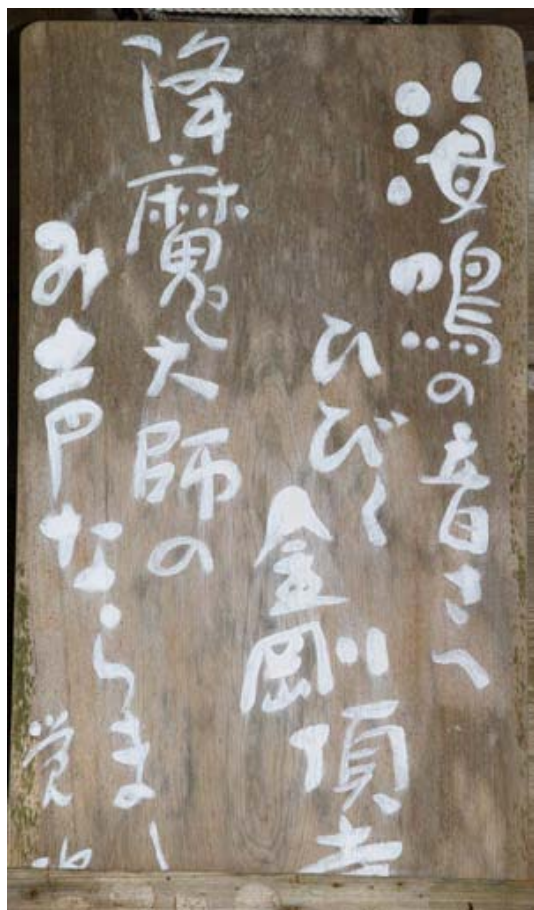 海鳴の音さへ
ひびく金剛頂寺
降魔大師の
み声ならまし
覚